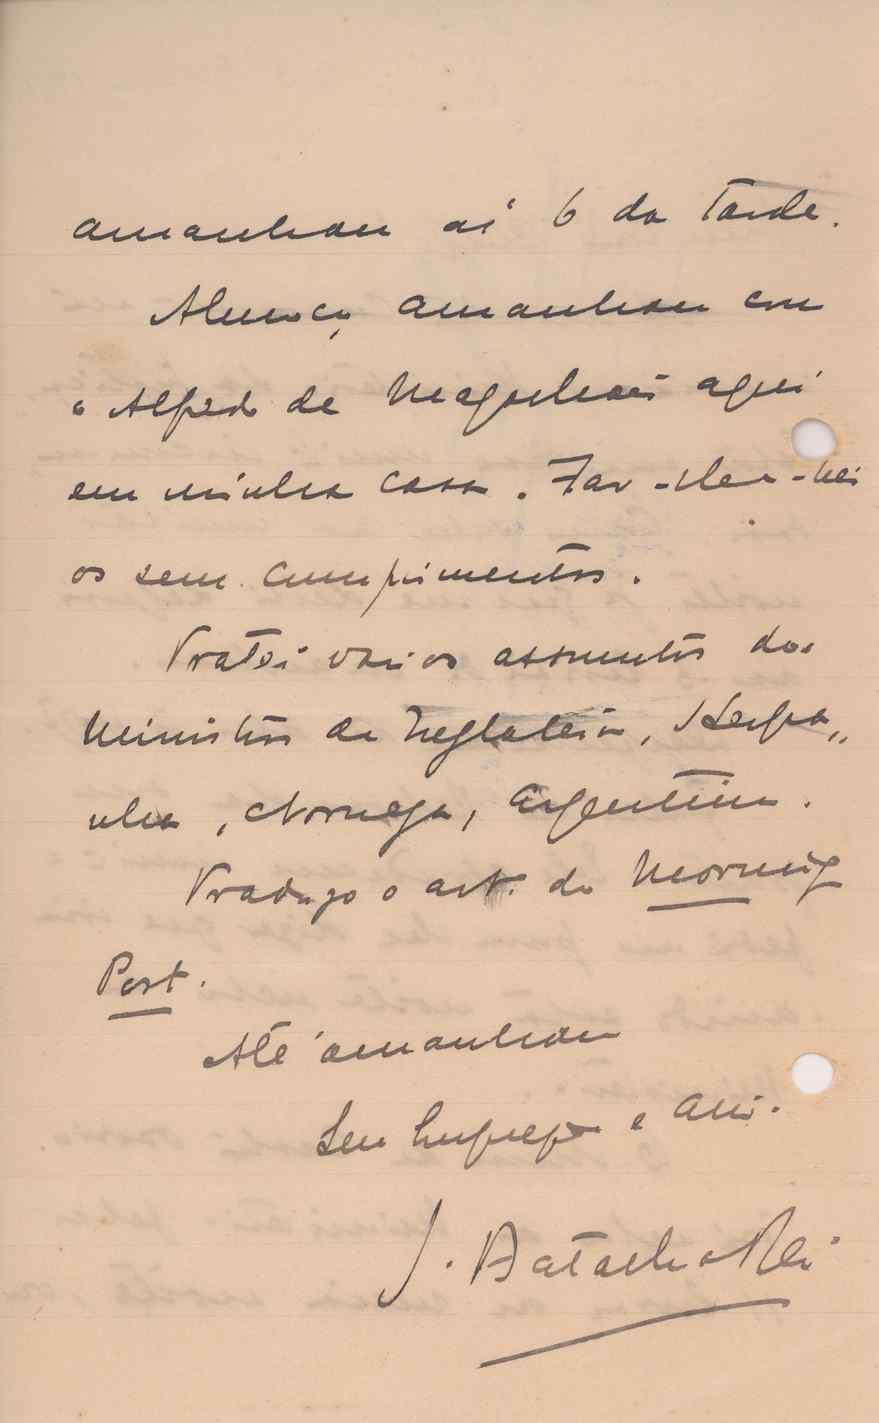 amanhan ás 6 da tarde.
Almoça amanhan com
o Alfredo de Magalhães aqui
em minha casa. Far-lhe-hei
os seus cumprimentos.
Tratei varios assumptos dos
Ministros de Inglaterra, Hespa„
nha, Noruega, Argentina.
Traduzo o art. do Morning
Post.
Até amanhan
Seu e am.
J. Batalha Reis